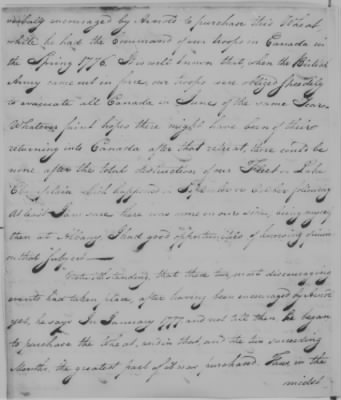 verbally encouraged by Arnold to purchase this Wheat
while he had the Command of our troops in Canada in
the Spring 1776. It is well known that when the British
Army came out in five, our troops were obliged speedily
to evacuate all Canada in June of the same Year.
Whatever faint hopes there might have been of their
returning into Canada after that retreat, there could be
none after the total destruction of our Fleet on Lake
Champlain which happened in September or October following
At least I am sure there was none on our side, being myself
then at Albany I had good opportunities of knowing opinions
on that subject—
Notwithstanding, that these two most discouraging
events had taken place, after having been encouraged by Arnold
yet, he says in January 1777 and not till then, he began
to purchase the Wheat, and in that, and the two succeeding
Months, the greatest part of it was purchased. Thus in the
midst